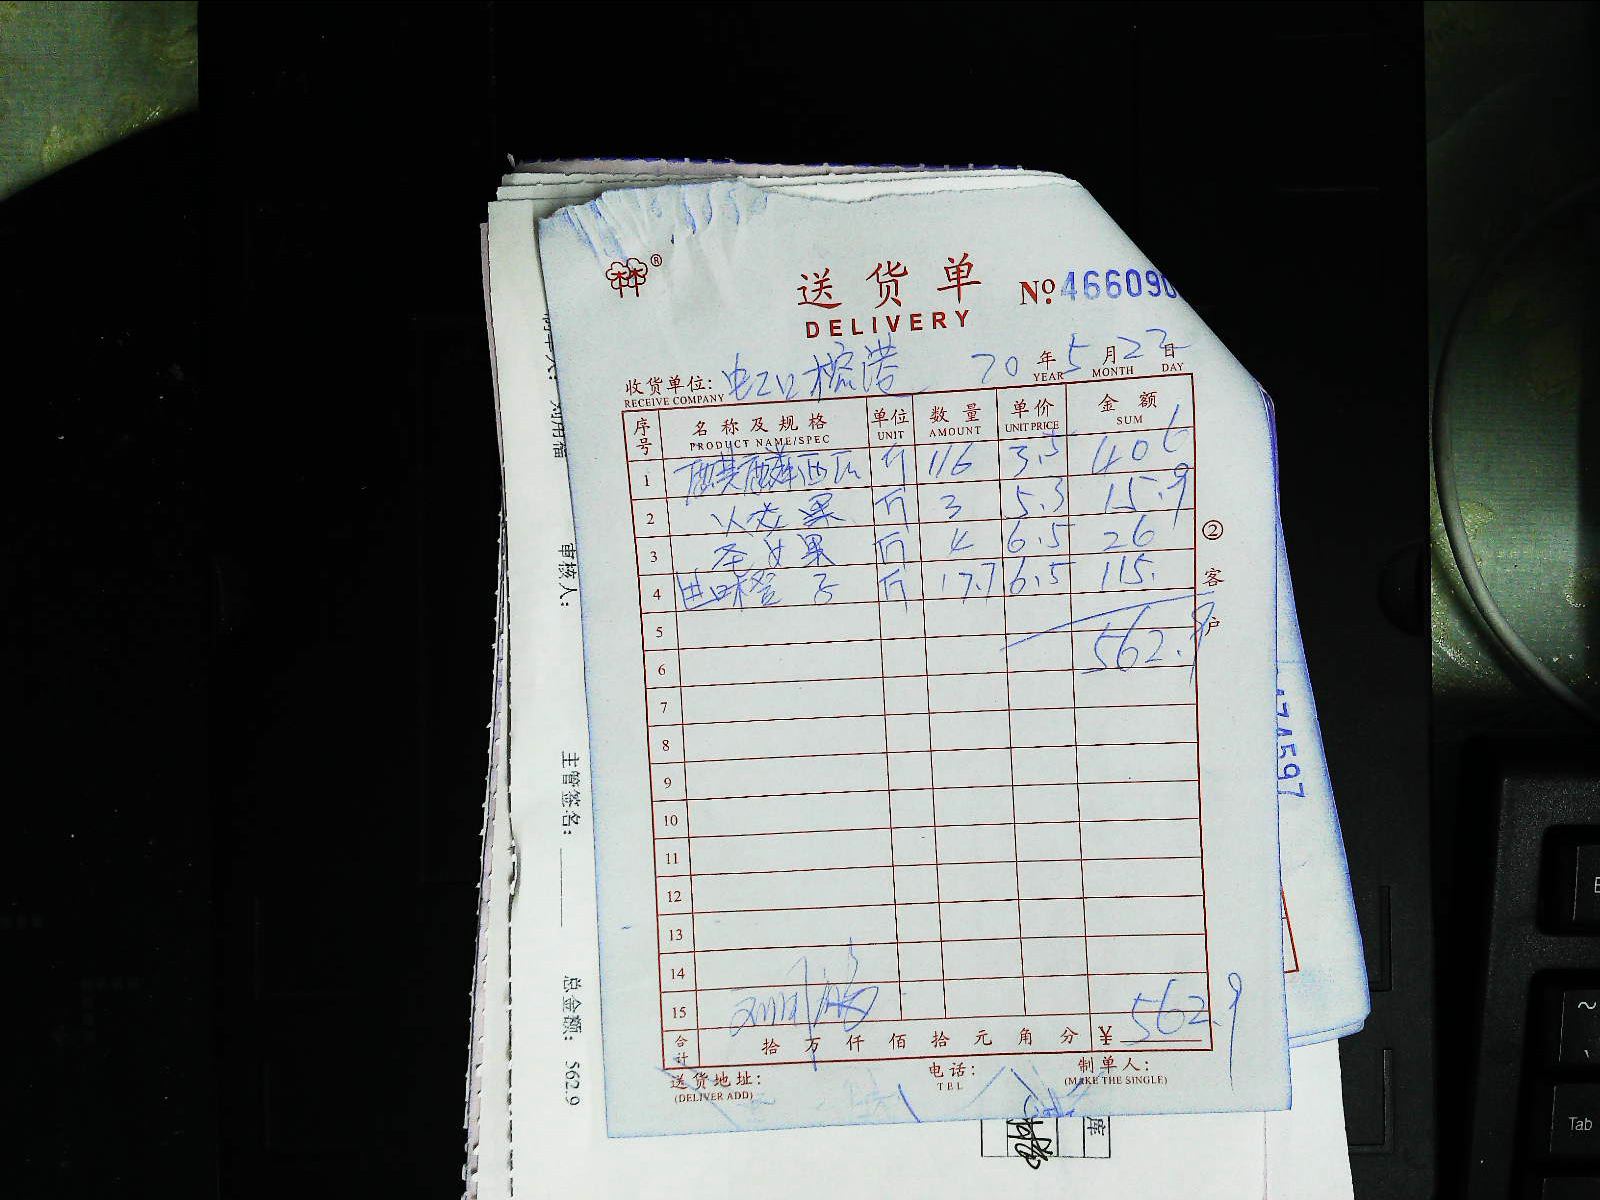 ®
送货单
DELIVERY
No. 466090
收货单位: 虹口榕港 20年5月22日
RECEIVE COMPANY YEAR MONTH DAY
序号 名称及规格 单位 数量 单价 金额
PRODUCT NAME/SPEC UNIT AMOUNT UNIT PRICE SUM
1 麒麟西瓜 斤 116 3.5 406
2 火龙果 斤 3 5.3 15.9
3 圣女果 斤 4 6.5 26
4 进口橙子 斤 17.7 6.5 115.
5 562.9
6
7
8
9
10
11
12
13
14
15
合计 拾万仟佰拾元角分 ¥ 562.9
送货地址: 电话: 制单人:
(DELIVER ADD) TEL (MAKE THE SINGLE)
② 客户
审核人:
主管签名:
总金额: 562.9
库
Tab
~